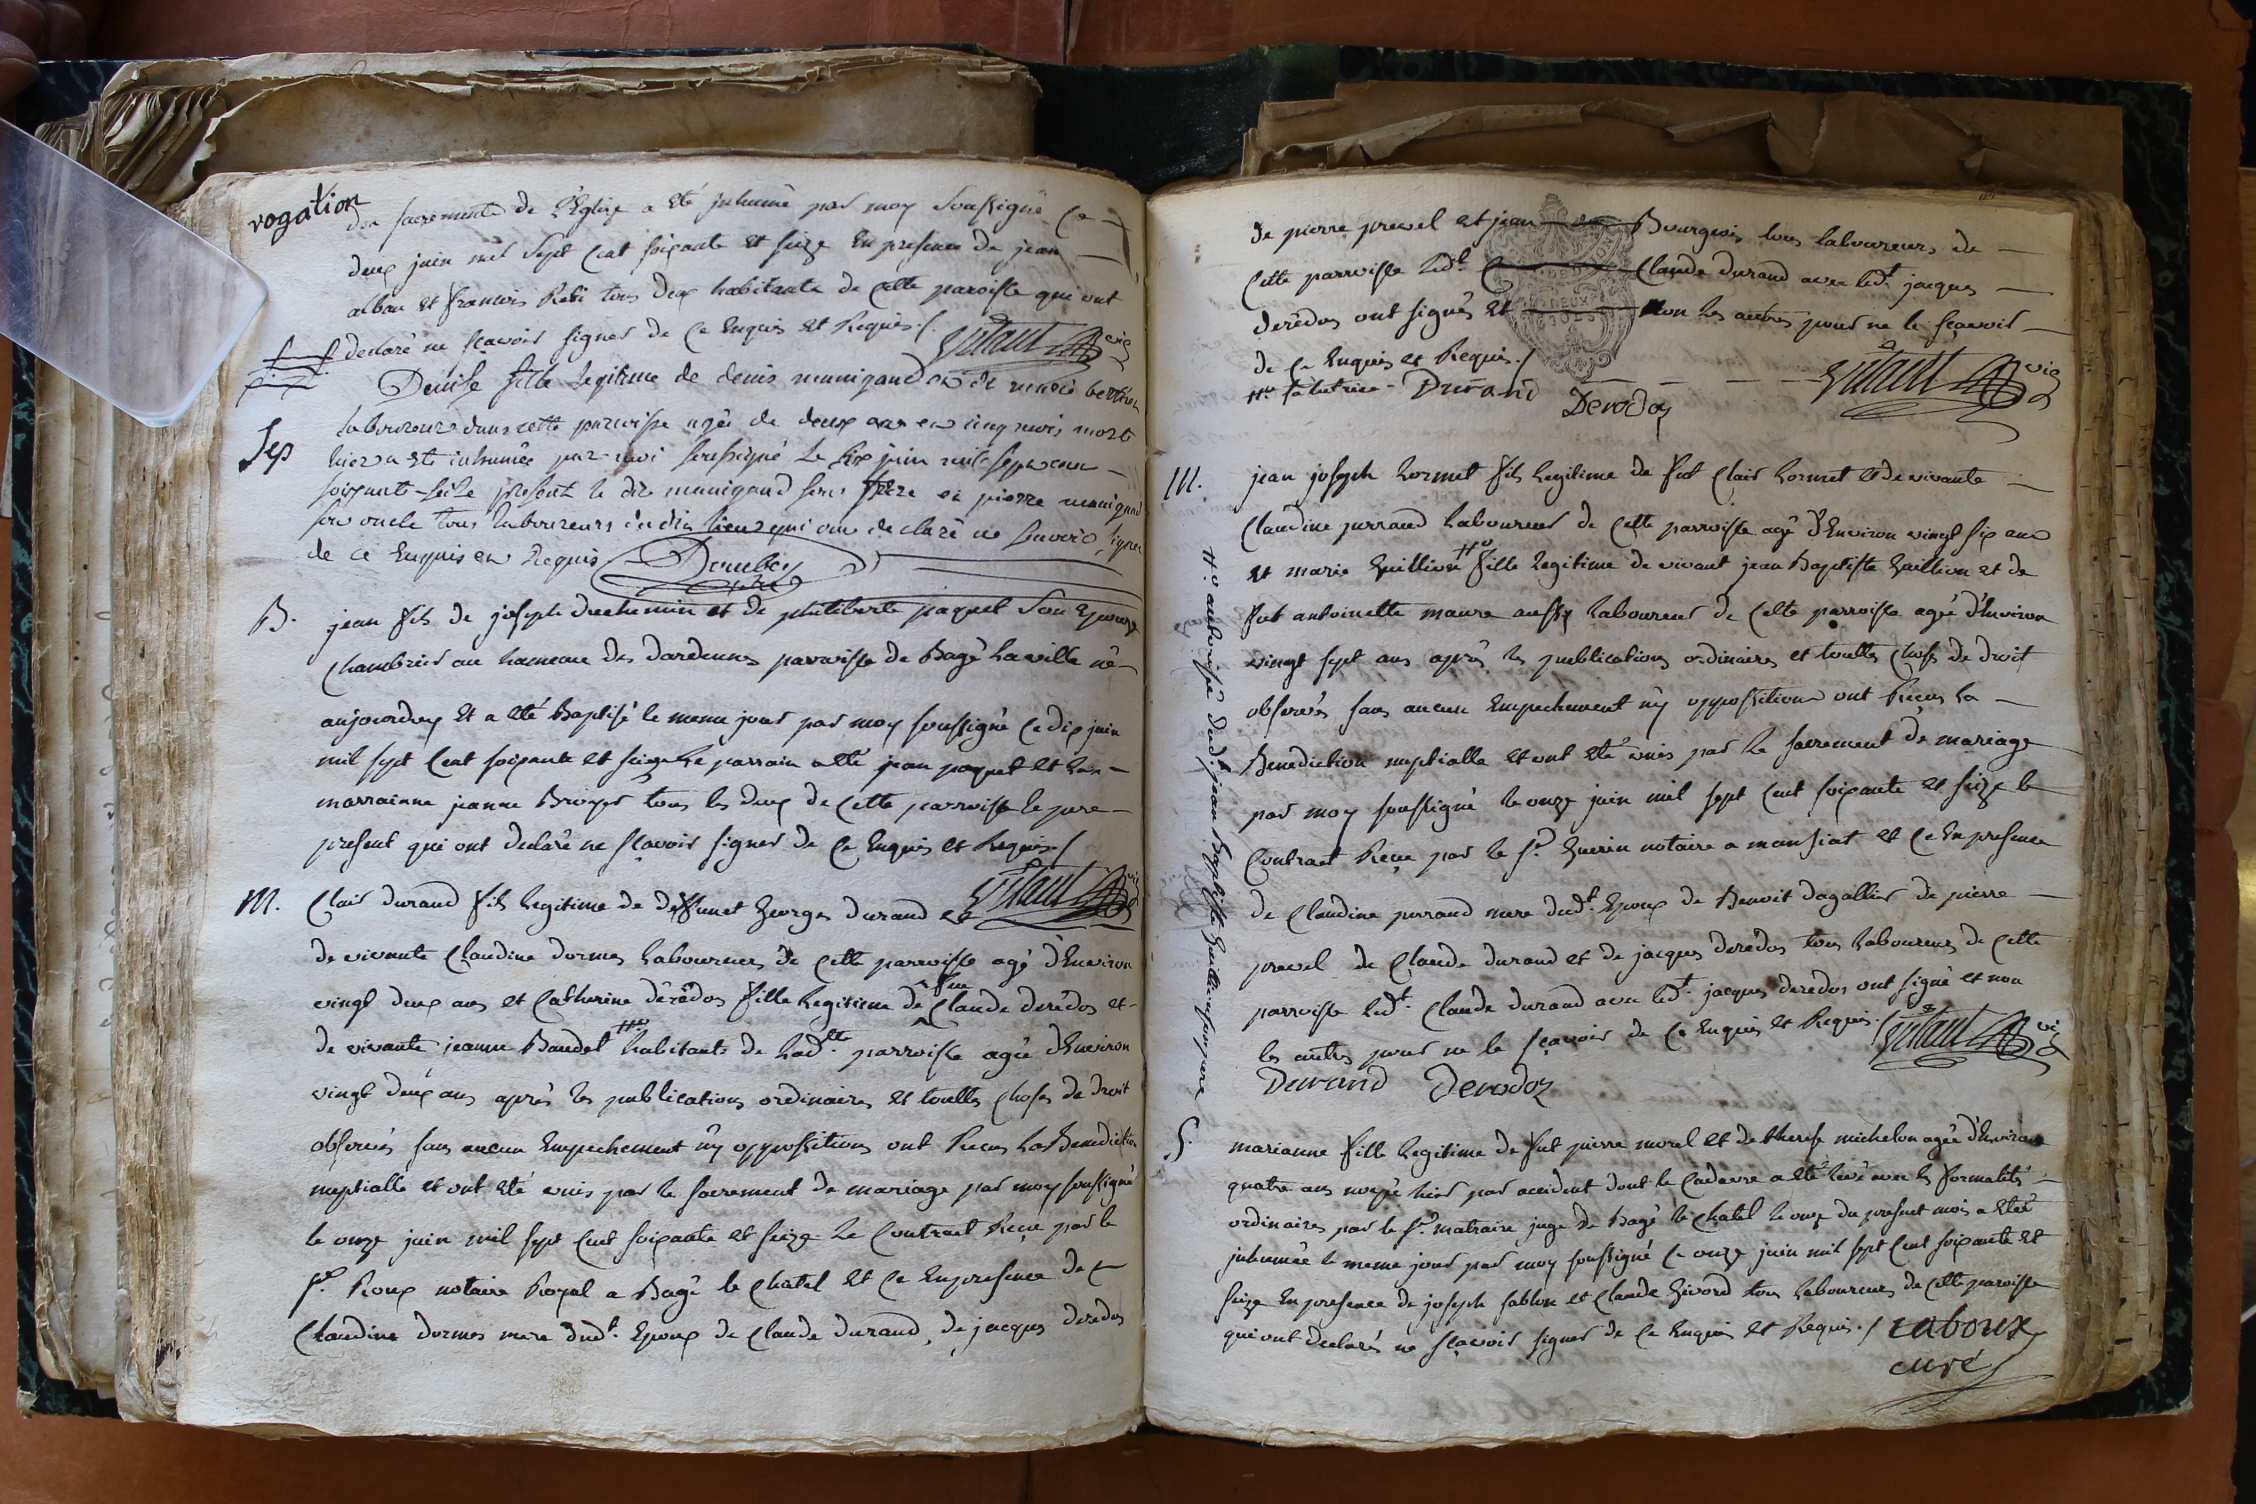 vogation
des sacrements de l'Eglise a été inhumé par moy soussigné ce
deux juin mil sept cent soixante et seize en presence de jean
alban et francois Rebi tous deux habitants de cette paroisse qui ont
declaré ne sçavoir signer de ce enquis et Requis ./. vic
Denise fille Legitime de denis manigand et de marie
Sep
laboureurs dans cette parroisse agée de deux ans et cinq mois morte
hier a été inhumée par moi soussigné le six juin mil sept cent
soixante-seize present le dit manigand son Pere et pierre manigand
son oncle tous laboureurs du dit lieu qui ont declaré ne sçavoir signer
de ce Enquis et Requis
B.
jean fils de joseph duchemin et de philiberte paquet son Epouse
chambrier au hameau des dardennes parroisse de Bagé la ville né
aujourduy et a été Baptisé le meme jour par moy soussigné ce dix juin
mil sept cent soixante et seize Le parrain a été jean paquet et la
marrainne jeanne Broyer tous les deux de cette parroisse le pere
present qui ont declaré ne sçavoir signer de ce Enquis et Requis ./
M.
Clair durand fils Legitime de deffunct George durand et
de vivante Claudine dormes Laboureur de cette parroisse agé d'Environ
vingt deux ans et Catherine dérédos fille Legitime de feu Claude derédos et
de vivante jeanne Baudet habitante de Lad.tte parroisse agée d'Environ
vingt deux ans après les publications ordinaires et touttes choses de droit
observés sans aucun Empechement ny oppossitions ont Recus La Benediction
nuptialle et ont été unis par le sacrement de mariage par moy soussigné
le onze juin mil sept cent soixante et seize Le Contract Reçue par le
s.r Roux notaire Royal a Bagé le Chatel et ce En presence de
Claudine dormes mere dud.t Epoux de Claude durand, de jacques deredos
de pierre prevel et jean Bourgeois tous laboureurs de
cette parroisse led.t Claude durand avec led.t jacques
derédos ont signés et non les autres pour ne le sçavoir
de ce Enquis et Requis ./
Durand
Derodoz
vic
M.
jean joseph Lormet fils Legitime de fut Clair Lormet et de vivante
Claudine perrand Laboureur de cette parroisse agé d'Environ vingt six ans
et marie Guillion fille Legitime de vivant jean Baptiste Guillion et de
fut antoinette maure aussy Laboureur de cette parroisse agée d'Environ
vingt sept ans après les publications ordinaires et touttes choses de droit
observés sans aucun Empechement ny oppossitions ont Reçus La
Benediction nuptialle et ont été unis par le sacrement de mariage
par moy soussigné le onze juin mil sept cent soixante et seize le
Contract Reçue par le s.r Guerin notaire a mansiat et ce En presence
de Claudine perrand mere dud.t Epoux de Benoit dagallier de pierre
prevel de Claude durand et de jacques deredos tous Laboureurs de cette
parroisse led.t Claude durand avec led.t jacques deredos ont signé et non
les autres pour ne le sçavoir de ce Enquis et Requis ./
Durand Derodoz
authorisée dud.t jean Baptiste Guillion son pere
S.
marianne fille Legitime de fut pierre morel et de therese michelon agée d'Environ
quatre ans noyée hier par accident dont le Cadavre a été levé avec les formalités
ordinaires par le s.r matraire juge de Bagé le Chatel le onze du present mois a été
inhumée le meme jour par moy soussigné ce onze juin mil sept cent soixante et
seize En presence de joseph sablon et Claude Givord tous Laboureurs de cette paroisse
qui ont declarés ne sçavoir signer de ce Enquis et Requis ./ Laboux
curé